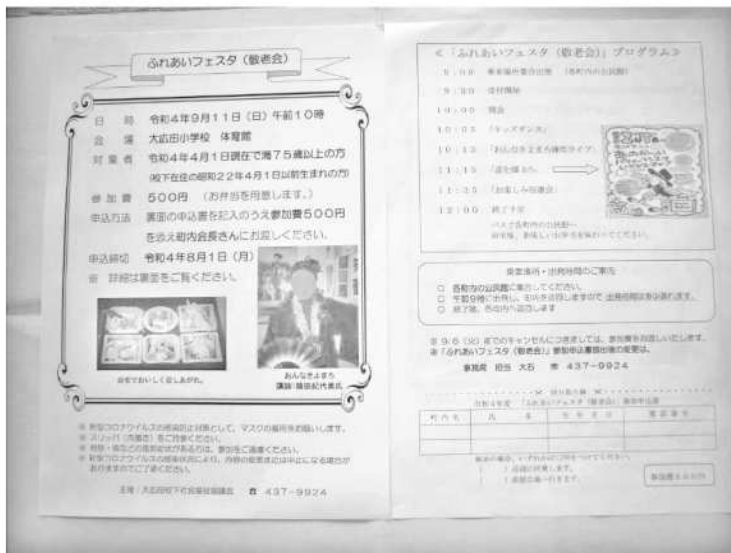 ふれあいフェスタ（敬老会）
日 時 令和4年9月11日（日）午前10時
会 場 大広田小学校 体育館
対象者 令和4年4月1日現在で満75歳以上の方
（校下在住の昭和22年4月1日以前生まれの方）
参加費 500円 （お弁当を用意します。）
申込方法 裏面の申込書を記入のうえ参加費500円
を添え町内会長さんにお渡しください。
申込締切 令和4年8月1日（月）
※ 詳細は裏面をご覧ください。
自宅でおいしく召しあがれ。
おんなきよまろ
※ 新型コロナウイルスの感染防止対策として、マスクの着用をお願いします。
※ スリッパ（内履き）をご持参ください。
※ 新型コロナウイルスの感染状況により、内容の変更または中止になる場合が
ありますのでご了承ください。
主催：大広田校下社会福祉協議会 ☎ 437-9924
≪「ふれあいフェスタ（敬老会）」プログラム≫
9:00 （各町内の公民館）
9:30 受付開始
10:00 開会
10:05 「キッズダンス」
10:15
11:15
11:35 「お楽しみ抽選会」
12:00 終了予定
バスで各町内の公民館へ
乗車場所・出発時間のご案内
○ 各町内の公民館に集合してください。
○ 午前9時に出発し、
○ 終了後、各町内へ
※ 9/6（火）までのキャンセルにつきましては、参加費をお返しいたします。
※「ふれあいフェスタ（敬老会）」参加申込書提出後の変更は、
事務局 担当 大石 ☎ 437-9924
令和4年度 「ふれあいフェスタ（敬老会）」参加申込書
町内名 氏 名 生年月日 電話番号
参加費500円